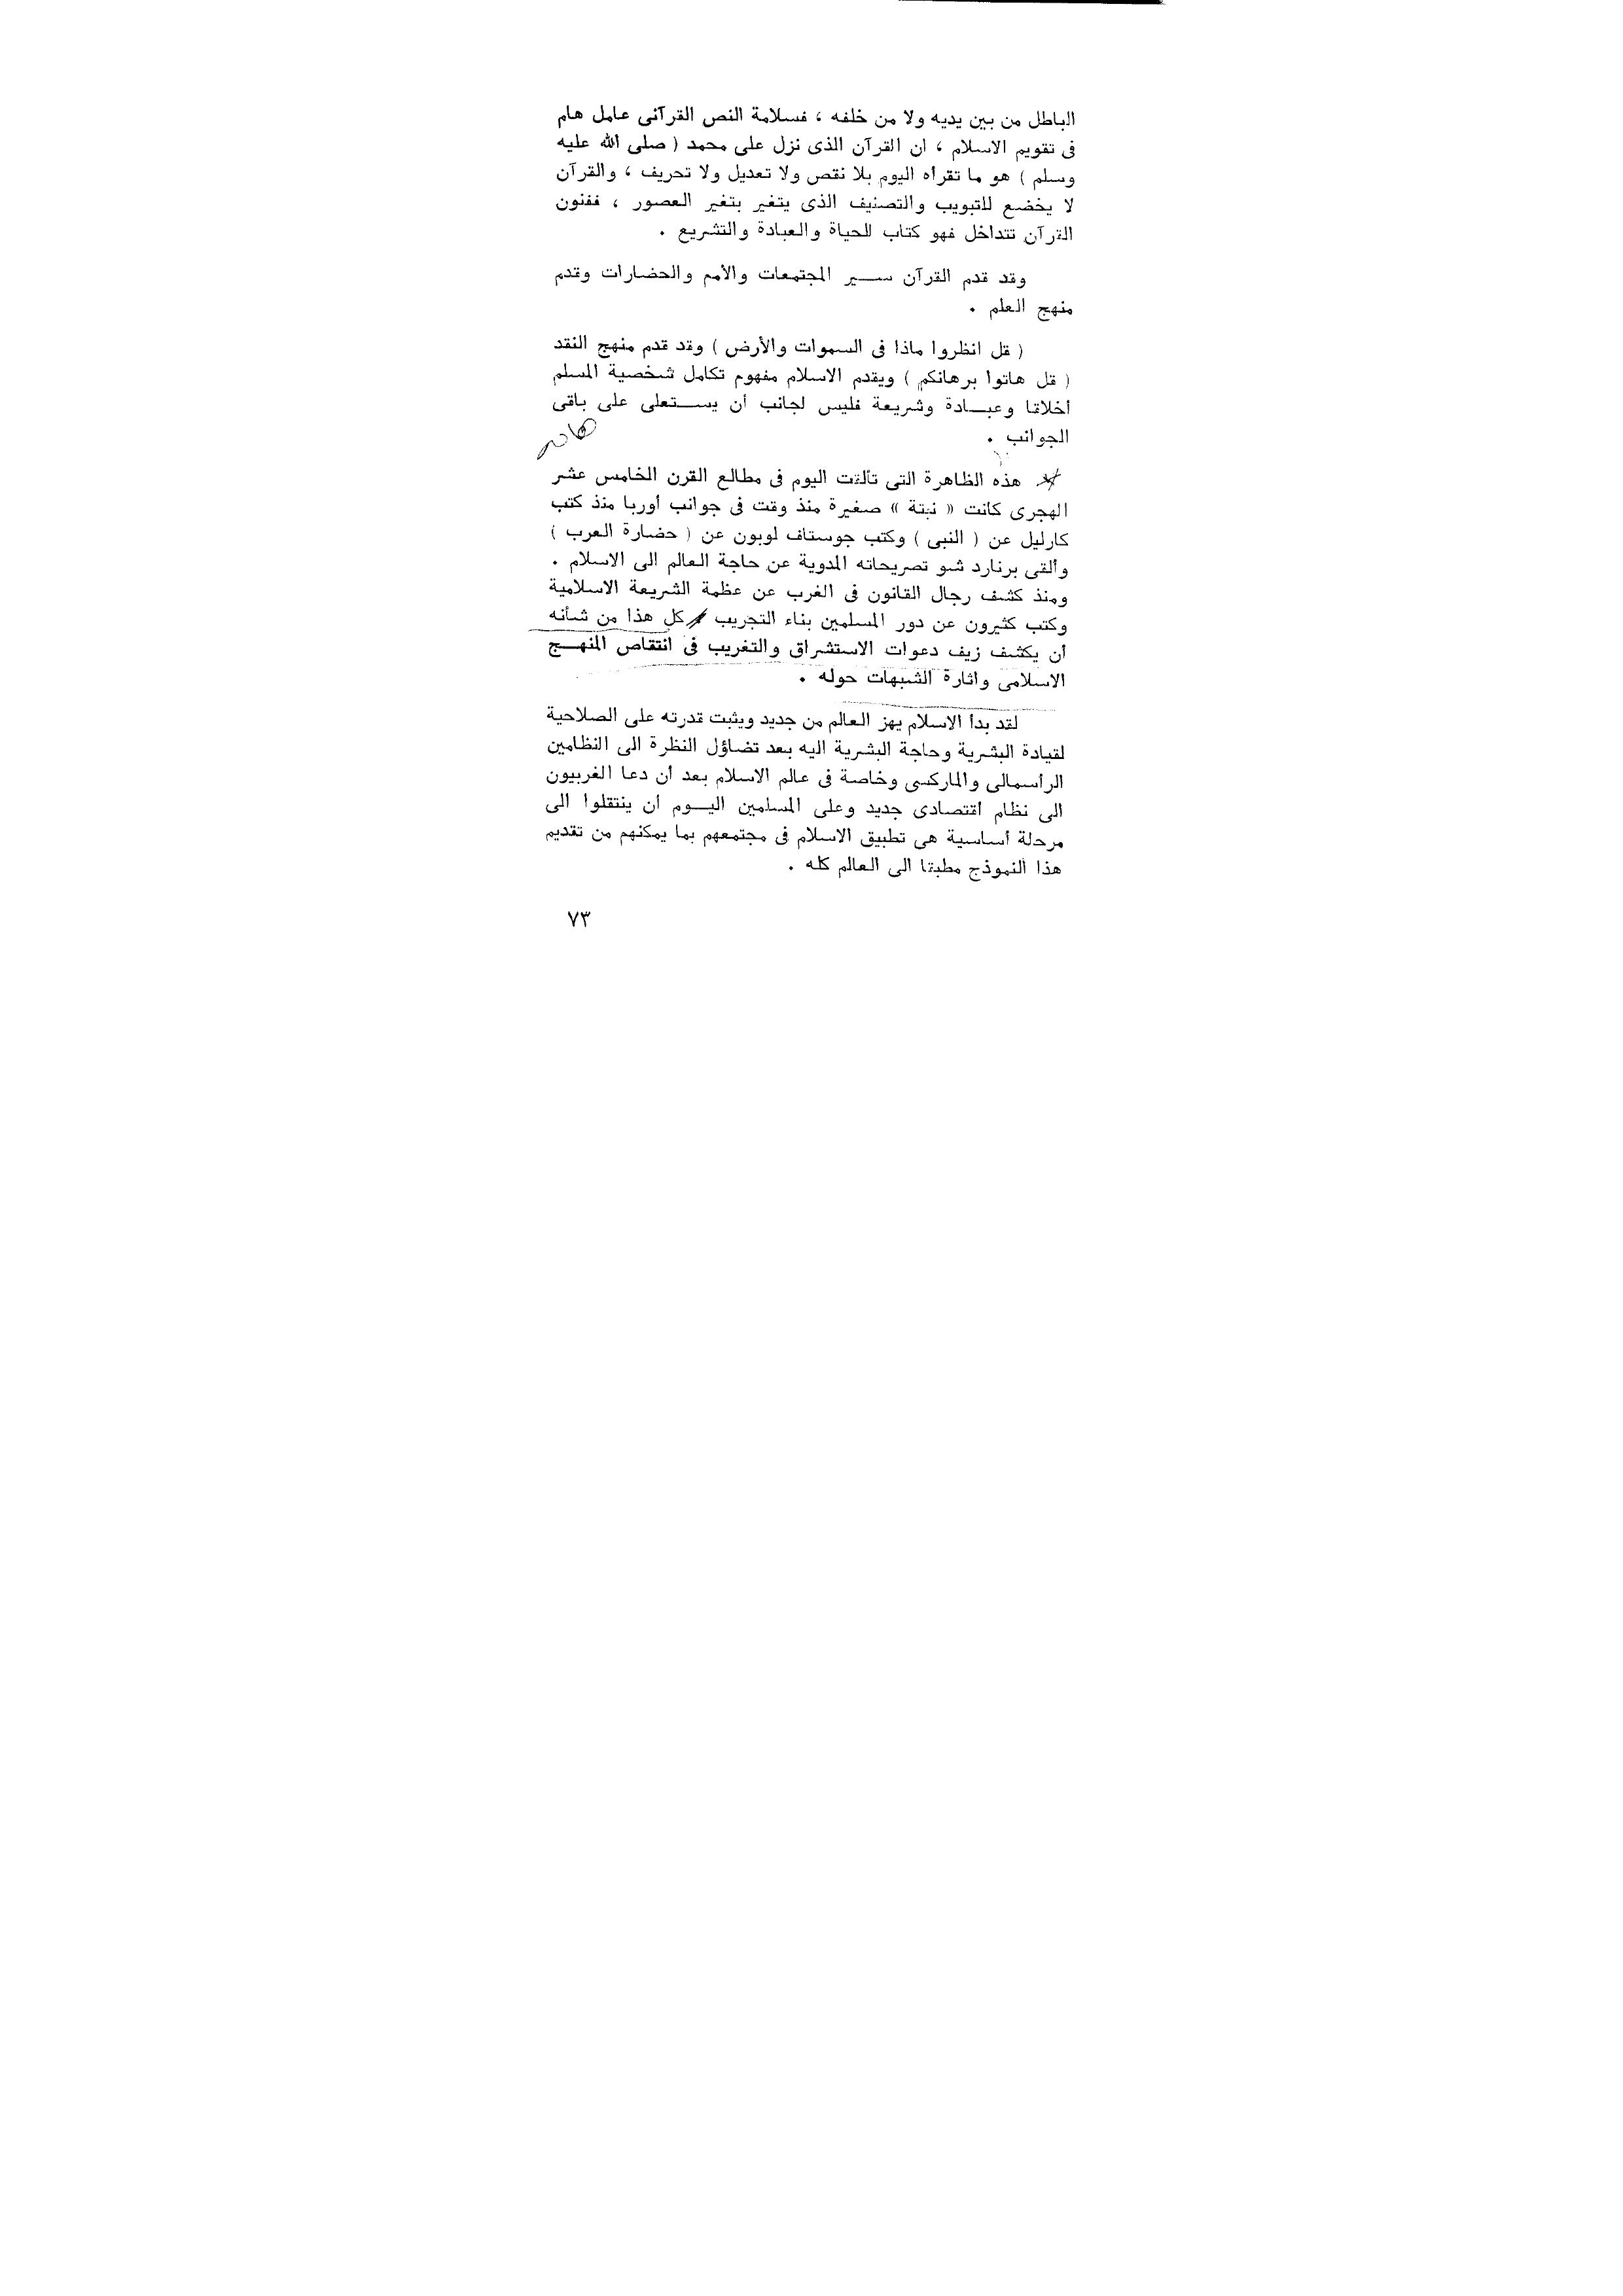 الباطل من بين يديه ولا من خلفه ، فسلامة النص القرآنى عامل هام
فى تقويم الاسلام ، ان القرآن الذى نزل على محمد ( صلى الله عليه
وسلم ) هو ما تقرأه اليوم بلا نقص ولا تعديل ولا تحريف ، والقرآن
لا يخضع للتبويب والتصنيف الذى يتغير بتغير العصور ، ففنون
القرآن تتداخل فهو كتاب للحياة والعبادة والتشريع .
وقد قدم القرآن ســير المجتمعات والأمم والحضارات وقدم
منهج العلم .
( قل انظروا ماذا فى السموات والأرض ) وقد قدم منهج النقد
( قل هاتوا برهانكم ) ويقدم الاسلام مفهوم تكامل شخصية المسلم
أخلاقا وعبــادة وشريعة فليس لجانب أن يســتعلى على باقى
الجوانب .
هام
* هذه الظاهرة التى تألقت اليوم فى مطالع القرن الخامس عشر
الهجرى كانت « نبتة » صغيرة منذ وقت فى جوانب أوربا منذ كتب
كارليل عن ( النبى ) وكتب جوستاف لوبون عن ( حضارة العرب )
وألقى برنارد شو تصريحاته المدوية عن حاجة العالم الى الاسلام .
ومنذ كشف رجال القانون فى الغرب عن عظمة الشريعة الاسلامية
وكتب كثيرون عن دور المسلمين بناء التجريب كل هذا من شأنه
أن يكشف زيف دعوات الاستشراق والتغريب فى انتقاص المنهــج
الاسلامى واثارة الشبهات حوله .
لقد بدأ الاسلام يهز العالم من جديد ويثبت قدرته على الصلاحية
لقيادة البشرية وحاجة البشرية اليه بعد تضاؤل النظرة الى النظامين
الرأسمالى والماركسى وخاصة فى عالم الاسلام بعد أن دعا الغربيون
الى نظام اقتصادى جديد وعلى المسلمين اليــوم أن ينتقلوا الى
مرحلة أساسية هى تطبيق الاسلام فى مجتمعهم بما يمكنهم من تقديم
هذا النموذج مطبقا الى العالم كله .
٧٣